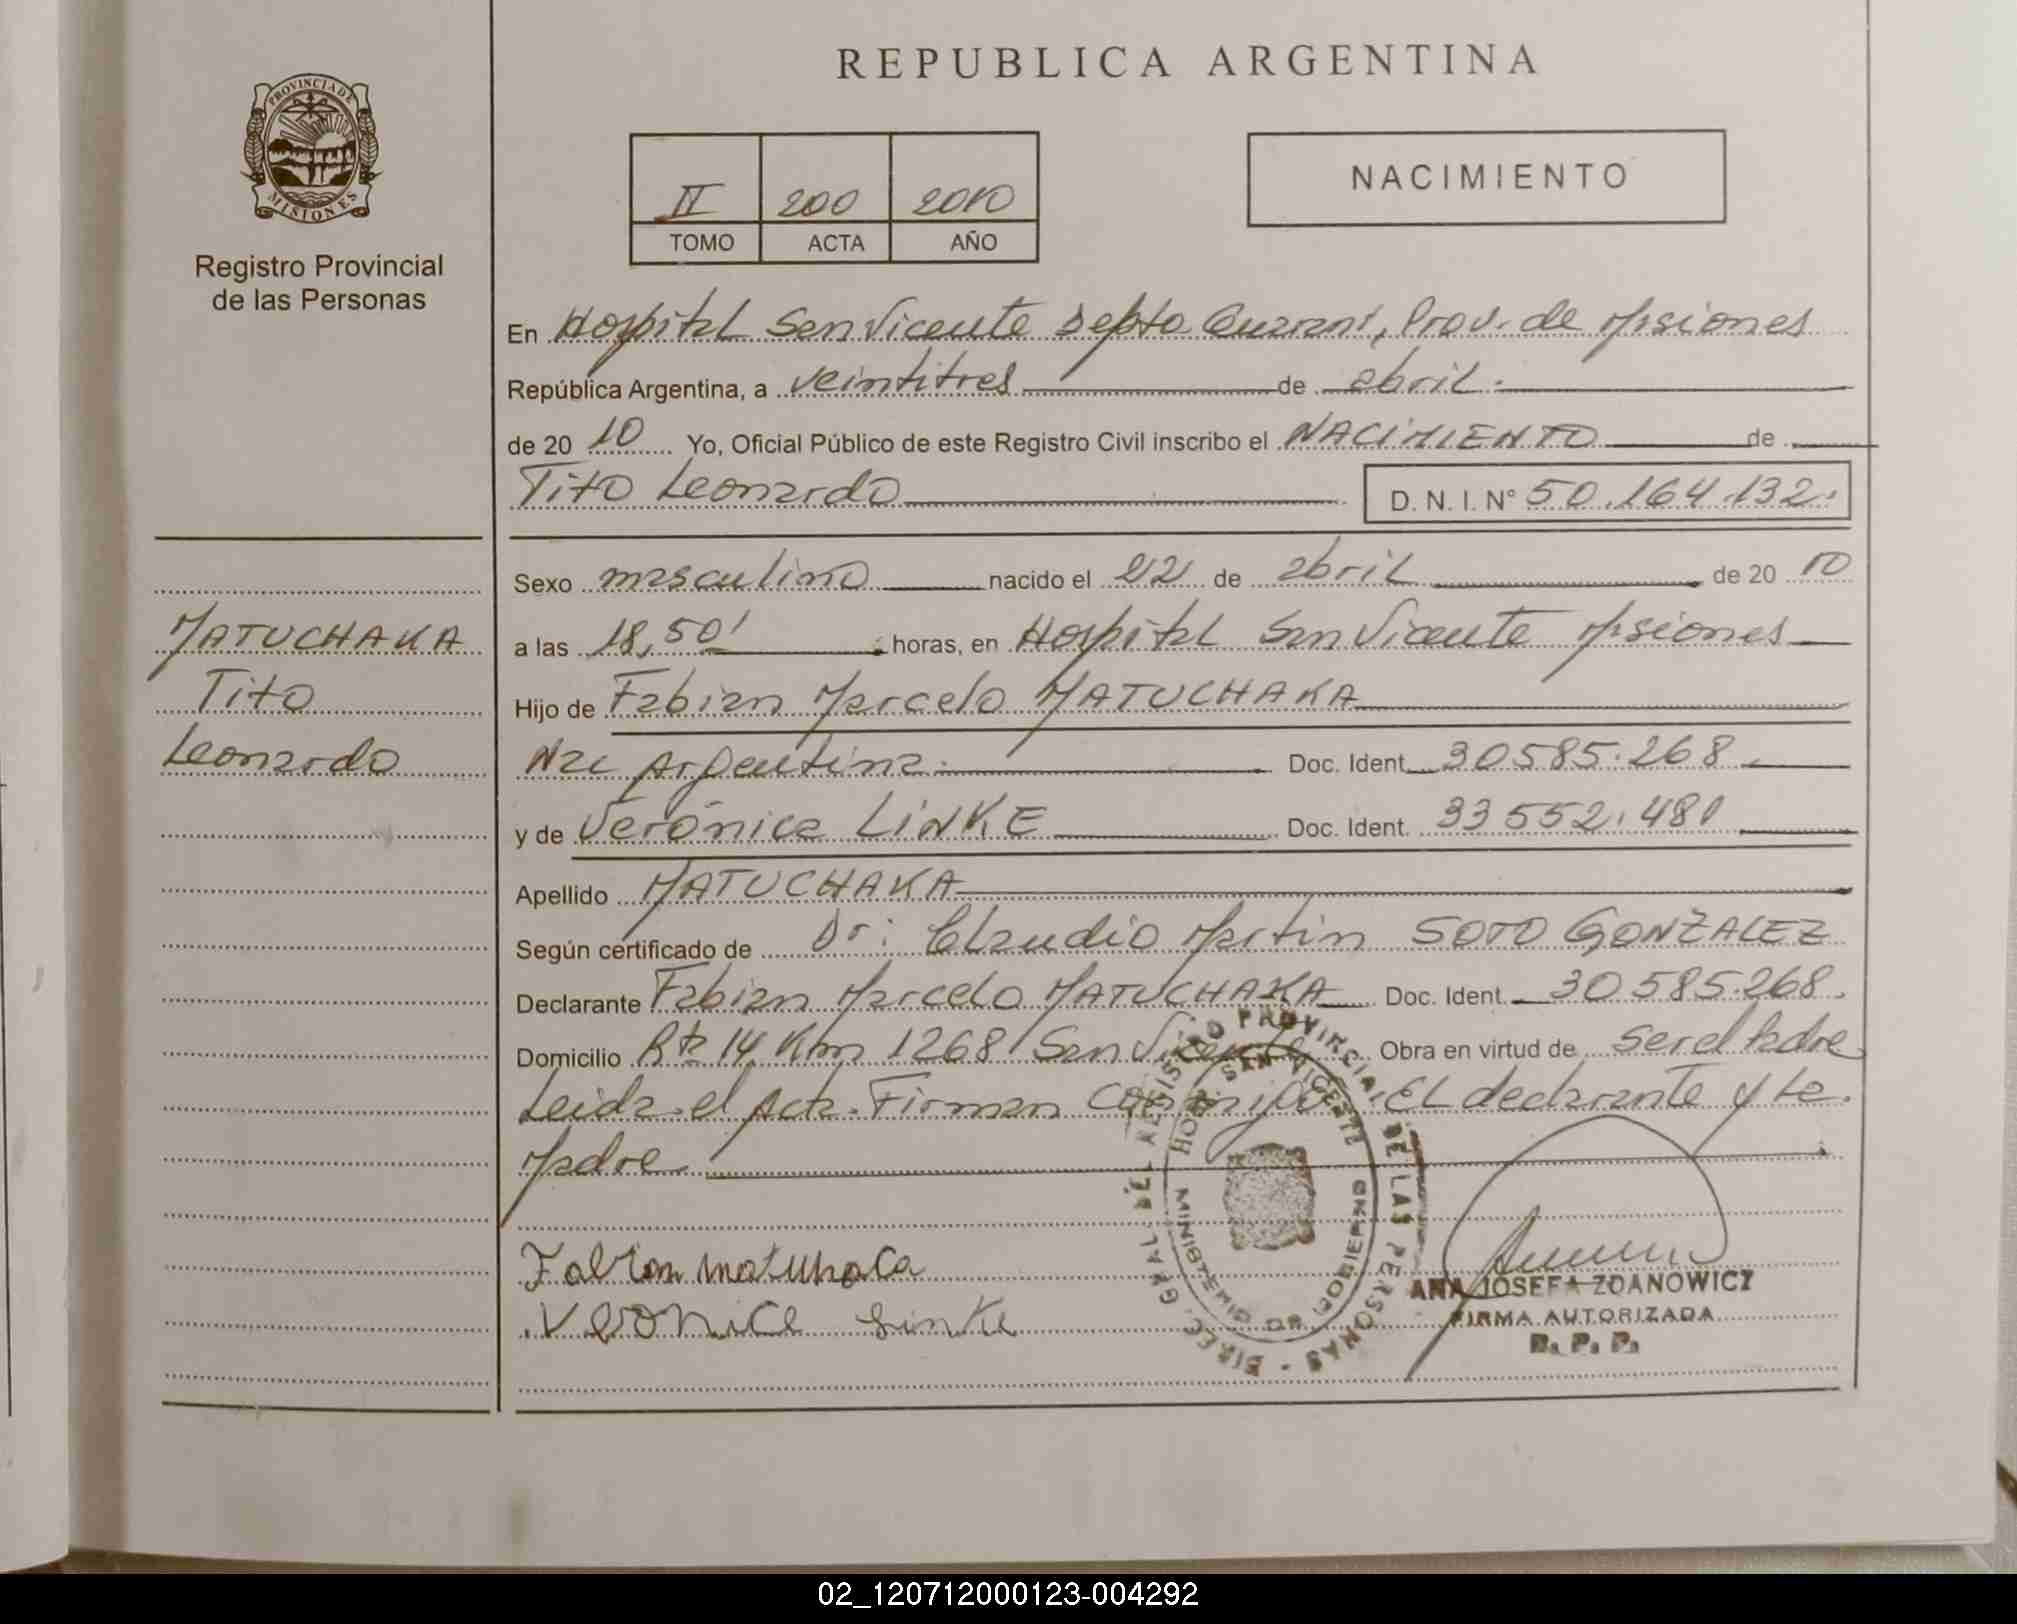 REPUBLICA ARGENTINA
PROVINCIA DE
MISIONES
Registro Provincial
de las Personas
II 200 2010
TOMO ACTA AÑO
NACIMIENTO
En Hospital San Vicente Depto Guarani, Prov. de Misiones
República Argentina, a veintitres de abril.
de 20 10 Yo, Oficial Público de este Registro Civil inscribo el NACIMIENTO de
Tito Leonardo D. N. I. N° 50.164.132.
Sexo masculino nacido el 22 de abril de 20 10
a las 18,50' horas, en Hospital San Vicente Misiones
Hijo de Fabian Marcelo MATUCHAKA
Nac Argentina. Doc. Ident. 30585.268
y de Verónica LINKE Doc. Ident. 33552.481
Apellido MATUCHAKA
Según certificado de Dr: Claudio Martin SOTO GONZALEZ
Declarante Fabian Marcelo MATUCHAKA Doc. Ident. 30585.268.
Domicilio Rta 14 Km 1268 San Vicente Obra en virtud de ser el Padre
Leida el Acta. Firman conmigo. El declarante y la
Madre
MATUCHAKA
Tito
Leonardo
Fabian matuhaca
Veronica Linke
DIREC. GRAL. DEL REGISTRO PROVINCIAL DE LAS PERSONAS
HOSP. SAN VICENTE
MINISTERIO DE GOBIERNO
ANA JOSEFA ZDANOWICZ
FIRMA AUTORIZADA
R. P. P.
02_120712000123-004292